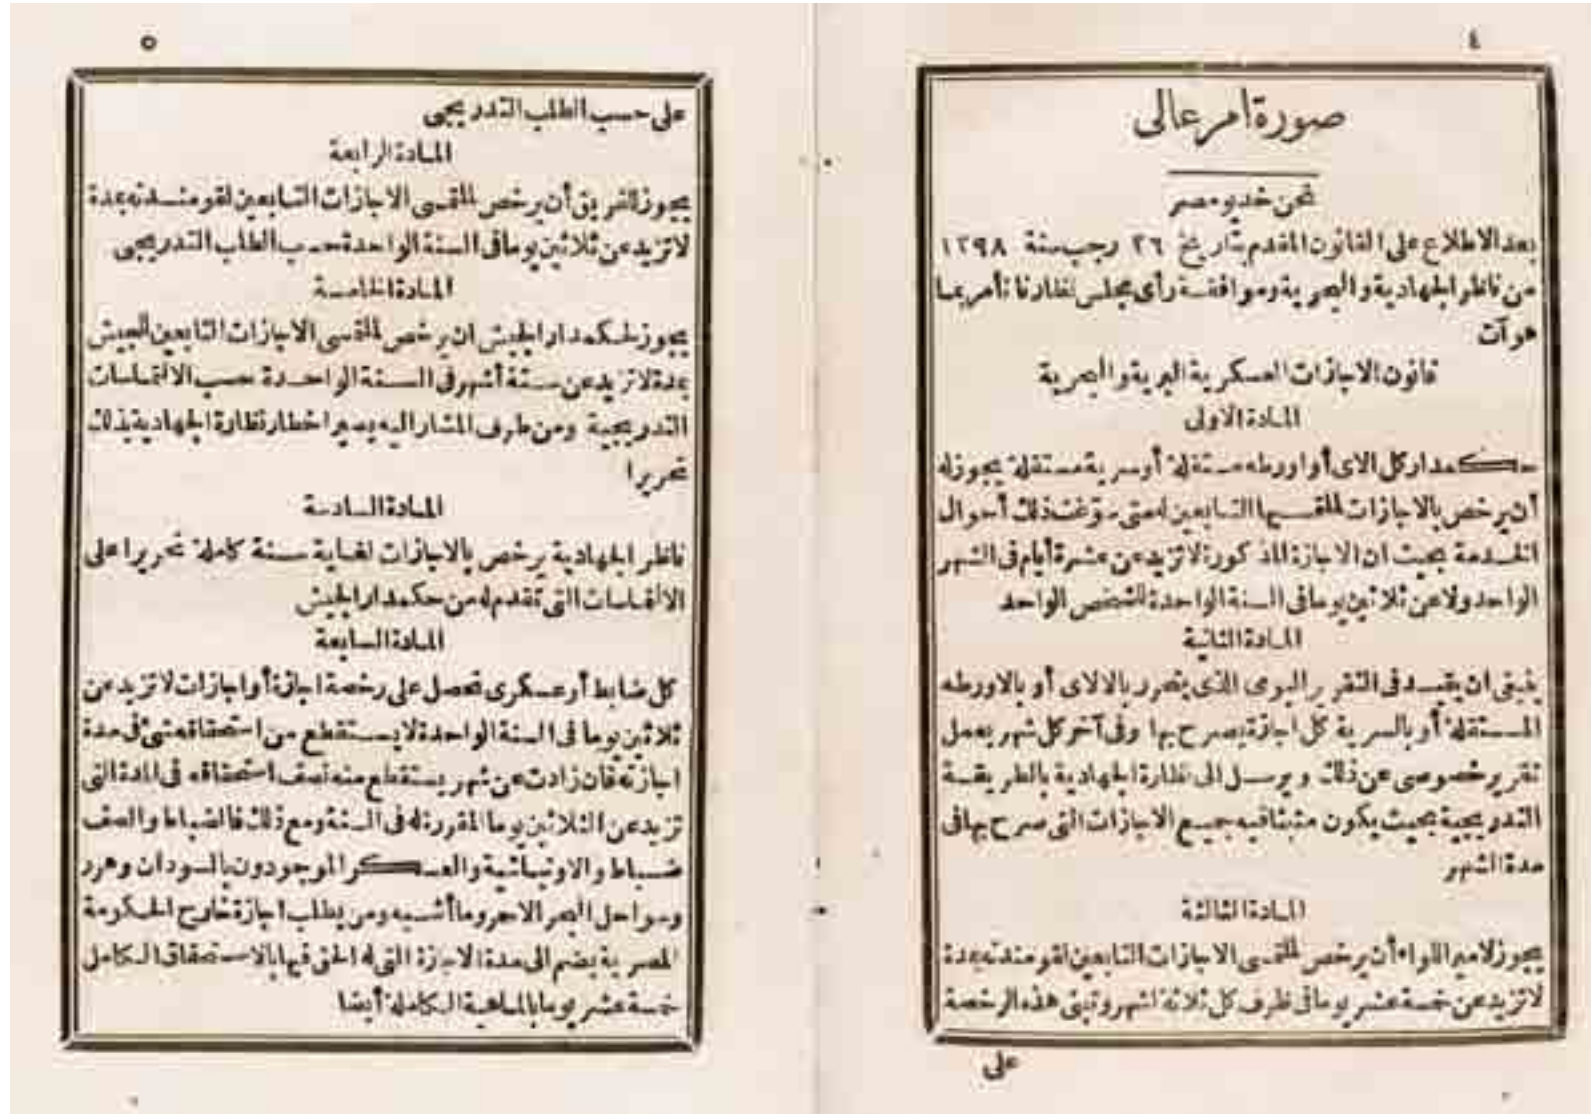 ٤
صورة امر عالى
نحن خديو مصر
بعد الاطلاع على القانون المقدم بتاريخ ٢٦ رجب سنة ١٢٩٨
من ناظر الجهادية والبحرية وموافقة رأى مجلس نظارنا نأمر بما
هو آت
قانون الاجازات العسكرية البرية والبحرية
المادة الاولى
حكمدار كل الاى أو اورطه مستقلة أو سرية مستقلة يجوز له
أن يرخص بالاجازات لملتمسيها التابعين له متى سوّغت ذلك أحوال
الخدمة بحيث ان الاجازة المذكورة لا تزيد عن عشرة أيام فى الشهر
الواحد ولا عن ثلاثين يوما فى السنة الواحدة للشخص الواحد
المادة الثانية
ينبغى ان يقيد فى التقرير اليومى الذى يتحرر بالالاى أو بالاورطه
المستقلة أو بالسرية كل اجازة يصرح بها وفى آخر كل شهر يعمل
تقرير خصوصى عن ذلك ويرسل الى نظارة الجهادية بالطريقة
التدريجية بحيث يكون مثبتا فيه جميع الاجازات التى صرح بها فى
مدة الشهر
المادة الثالثة
يجوز لامير اللواء أن يرخص لملتمسى الاجازات التابعين لقومندته بمدة
لا تزيد عن خمسة عشر يوما فى ظرف كل ثلاثة اشهر وتبتى هذه الرخصة
على
٥
على حسب الطلب التدريجى
المادة الرابعة
يجوز للفريق أن يرخص لملتمسى الاجازات التابعين لقومندته بمدة
لا تزيد عن ثلاثين يوما فى السنة الواحدة حسب الطلب التدريجى
المادة الخامسة
يجوز لحكمدار الجيش ان يرخص لملتمسى الاجازات التابعين للجيش
بمدة لا تزيد عن ستة أشهر فى السنة الواحدة حسب الالتماسات
التدريجية ومن طرف المشار اليه يصير اخطار نظارة الجهادية بذلك
تحريرا
المادة السادسة
ناظر الجهادية يرخص بالاجازات لغاية سنة كاملة تحريرا على
الالتماسات التى تقدم له من حكمدار الجيش
المادة السابعة
كل ضابط أو عسكرى تحصل على رخصة اجازة أو اجازات لا تزيد عن
ثلاثين يوما فى السنة الواحدة لا يستقطع من استحقاقه شئ فى مدة
اجازته فان زادت عن شهر يستقطع منه نصف استحقاقه فى المدة التى
تزيد عن الثلاثين يوما المقررة له فى السنة ومع ذلك فالضباط والصف
ضباط والاونباشية والعسكر الموجودون بالسودان وهرر
وسواحل البحر الاحمر وما أشبه ومن يطلب اجازة خارج الحكومة
المصرية يضم الى مدة الاجازة التى له الحق فيها بالاستحقاق الكامل
خمسة عشر يوما بالماهية الكاملة أيضا